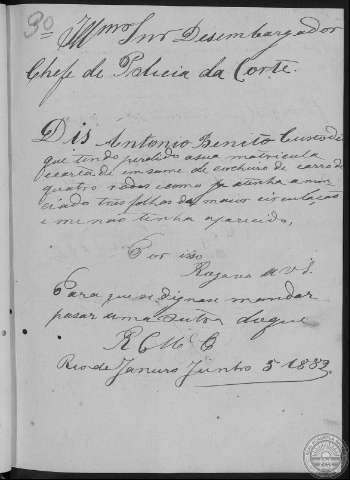 3º
Illmo Snr Desembargador
Chefe de Policia da Corte.
Dis Antonio Benito
que tendo perdido asua matricula
ecarta de emsame de cocheiro de carro de
quatro rodas ecomo ja atenha anun
ciado tres folhas da maior circulação
e me não tenha aparecido,
Por isso
Rogava a V. S.
Para que se dignase mandar
pasar uma outra
R C M C
Rio de Janeiro Junho 5 1883